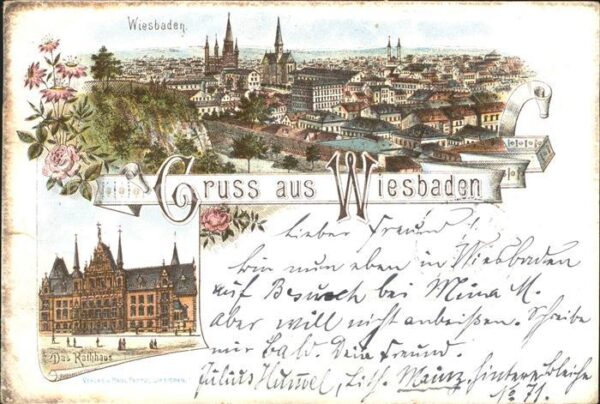 Wiesbaden.
Gruss aus Wiesbaden
Lieber Freund!
bin nun eben in Wiesbaden
auf Besuch bei Mina M.
aber will nicht anbeißen. Schreibe
mir bald. Dein Freund.
Julius Hummel, Lith. Mainz, hintere Bleiche
No 71.
Das Rathhaus